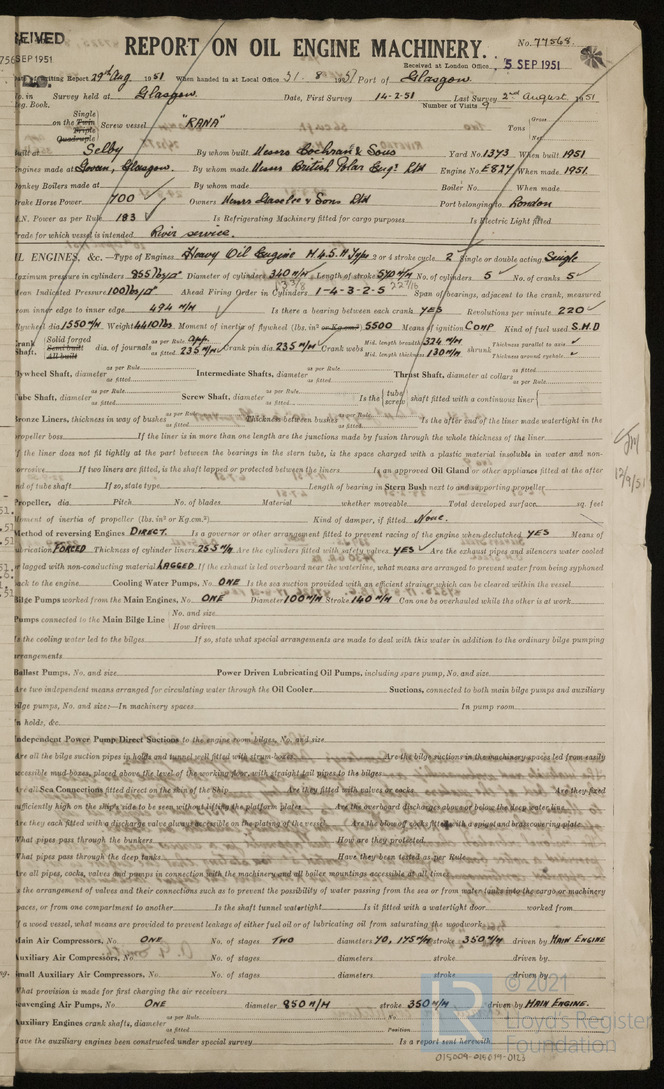 EIVED
SEP 1951
REPORT ON OIL ENGINE MACHINERY.
No. 77568
Received at London Office 5 SEP 1951
writing Report 29th Aug. 1951 When handed in at Local Office 31 - 8 1951 Port of Glasgow
No. in Survey held at Glasgow Date, First Survey 14-2-51 Last Survey 2nd August 1951
Reg. Book. Number of Visits 9
Single
on the Twin Screw vessel "KANA" Tons Gross
Triple
Quadruple Net
Built at Selby By whom built Messrs Cochran & Sons Yard No. 1373 When built 1951
Engines made at Govan, Glasgow By whom made Messrs British Polar Engs Ltd Engine No. E827 When made 1951
Donkey Boilers made at By whom made Boiler No. When made
Brake Horse Power 700 Owners & Sons Ltd Port belonging to London
M.N. Power as per Rule 183 Is Refrigerating Machinery fitted for cargo purposes Is Electric Light fitted
Trade for which vessel is intended River service.
OIL ENGINES, &c.—Type of Engines Heavy Oil Engine M45M Type 2 or 4 stroke cycle 2 Single or double acting Single
Maximum pressure in cylinders 855 lbs/□" Diameter of cylinders 340 M/M Length of stroke 570 M/M No. of cylinders 5 No. of cranks 5
Mean Indicated Pressure 100 lbs/□" Ahead Firing Order in Cylinders 1-4-3-2-5 Span of bearings, adjacent to the crank, measured
from inner edge to inner edge 494 M/M Is there a bearing between each crank YES Revolutions per minute 220
Flywheel dia. 1550 M/M Weight 4410 lbs Moment of inertia of flywheel (lbs. in² or Kg.cm.²) 5500 Means of ignition COMP Kind of fuel used S.H.D
Crank Shaft. Solid forged Semi built All built dia. of journals as per Rule App. as fitted 235 M/M Crank pin dia. 235 M/M Crank webs Mid. length breadth 324 M/M Mid. length thickness 130 M/M shrunk Thickness parallel to axis Thickness around eyehole
Flywheel Shaft, diameter as per Rule as fitted Intermediate Shafts, diameter as per Rule as fitted Thrust Shaft, diameter at collars as per Rule as fitted
Tube Shaft, diameter as per Rule as fitted Screw Shaft, diameter as per Rule as fitted Is the tube screw shaft fitted with a continuous liner
Bronze Liners, thickness in way of bushes as per Rule as fitted Thickness between bushes as per Rule as fitted Is the after end of the liner made watertight in the
propeller boss If the liner is in more than one length are the junctions made by fusion through the whole thickness of the liner
If the liner does not fit tightly at the part between the bearings in the stern tube, is the space charged with a plastic material insoluble in water and non-
corrosive If two liners are fitted, is the shaft lapped or protected between the liners Is an approved Oil Gland or other appliance fitted at the after
end of tube shaft If so, state type Length of bearing in Stern Bush next to and supporting propeller
Propeller, dia. Pitch No. of blades Material whether moveable Total developed surface sq. feet
Moment of inertia of propeller (lbs. in² or Kg.cm.²) Kind of damper, if fitted None.
Method of reversing Engines DIRECT. Is a governor or other arrangement fitted to prevent racing of the engine when declutched YES Means of
lubrication FORCED Thickness of cylinder liners 25.5 M/M Are the cylinders fitted with safety valves YES Are the exhaust pipes and silencers water cooled
or lagged with non-conducting material LAGGED If the exhaust is led overboard near the waterline, what means are arranged to prevent water from being syphoned
back to the engine Cooling Water Pumps, No. ONE Is the sea suction provided with an efficient strainer which can be cleared within the vessel
Bilge Pumps worked from the Main Engines, No. ONE Diameter 100 M/M Stroke 140 M/M Can one be overhauled while the other is at work
Pumps connected to the Main Bilge Line No. and size
How driven
Is the cooling water led to the bilges If so, state what special arrangements are made to deal with this water in addition to the ordinary bilge pumping
arrangements
Ballast Pumps, No. and size Power Driven Lubricating Oil Pumps, including spare pump, No. and size
Are two independent means arranged for circulating water through the Oil Cooler Suctions, connected to both main bilge pumps and auxiliary
bilge pumps, No. and size:—In machinery spaces In pump room
In holds, &c.
Independent Power Pump Direct Suctions to the engine room bilges, No. and size
Are all the bilge suction pipes in holds and tunnel well fitted with strum-boxes Are the bilge suctions in the machinery spaces led from easily
accessible mud-boxes, placed above the level of the working floor, with straight tail pipes to the bilges
Are all Sea Connections fitted direct on the skin of the Ship Are they fitted with valves or cocks Are they fixed
sufficiently high on the ship's side to be seen without lifting the platform plates Are the overboard discharges above or below the deep water line
Are they each fitted with a discharge valve always accessible on the plating of the vessel Are the blow off cocks fitted with a spigot and brass covering plate
What pipes pass through the bunkers How are they protected
What pipes pass through the deep tanks Have they been tested as per Rule
Are all pipes, cocks, valves and pumps in connection with the machinery and all boiler mountings accessible at all times
Is the arrangement of valves and their connections such as to prevent the possibility of water passing from the sea or from water tanks into the cargo or machinery
spaces, or from one compartment to another Is the shaft tunnel watertight Is it fitted with a watertight door worked from
If a wood vessel, what means are provided to prevent leakage of either fuel oil or of lubricating oil from saturating the woodwork
Main Air Compressors, No. ONE No. of stages TWO diameters 70, 175 M/M stroke 350 M/M driven by MAIN ENGINE
Auxiliary Air Compressors, No. No. of stages diameters stroke driven by
Small Auxiliary Air Compressors, No. No. of stages diameters stroke driven by
What provision is made for first charging the air receivers
Scavenging Air Pumps, No. ONE diameter 850 M/M stroke 350 M/M driven by MAIN ENGINE.
Auxiliary Engines crank shafts, diameter as per Rule as fitted No. Position
Have the auxiliary engines been constructed under special survey Is a report sent herewith
12/9/51
© 2021
Lloyd's Register
Foundation
015009-015019-0123